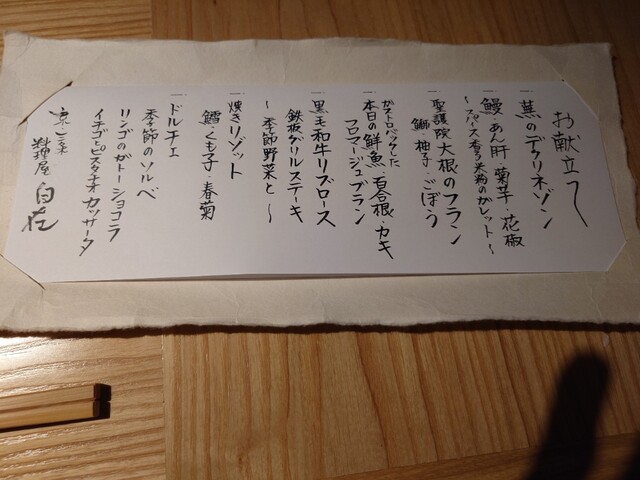 お献立て
一 蕪のデクリネゾン
一 鰻 あん肝 菊芋・花椒
〜スパイス香る米粉のガレット〜
一 聖護院大根のフラン
鰤・柚子・ごぼう
ガストロバックした
一 本日の鮮魚・百合根・カキ
フロマージュブラン
一 黒毛和牛リブロース
鉄板グリルステーキ
〜季節野菜と〜
一 焼きリゾット
鱈・くも子・春菊
一 ドルチェ
季節のソルベ
リンゴのガトーショコラ
イチゴとピスタチオ カッサータ
料理屋 自在